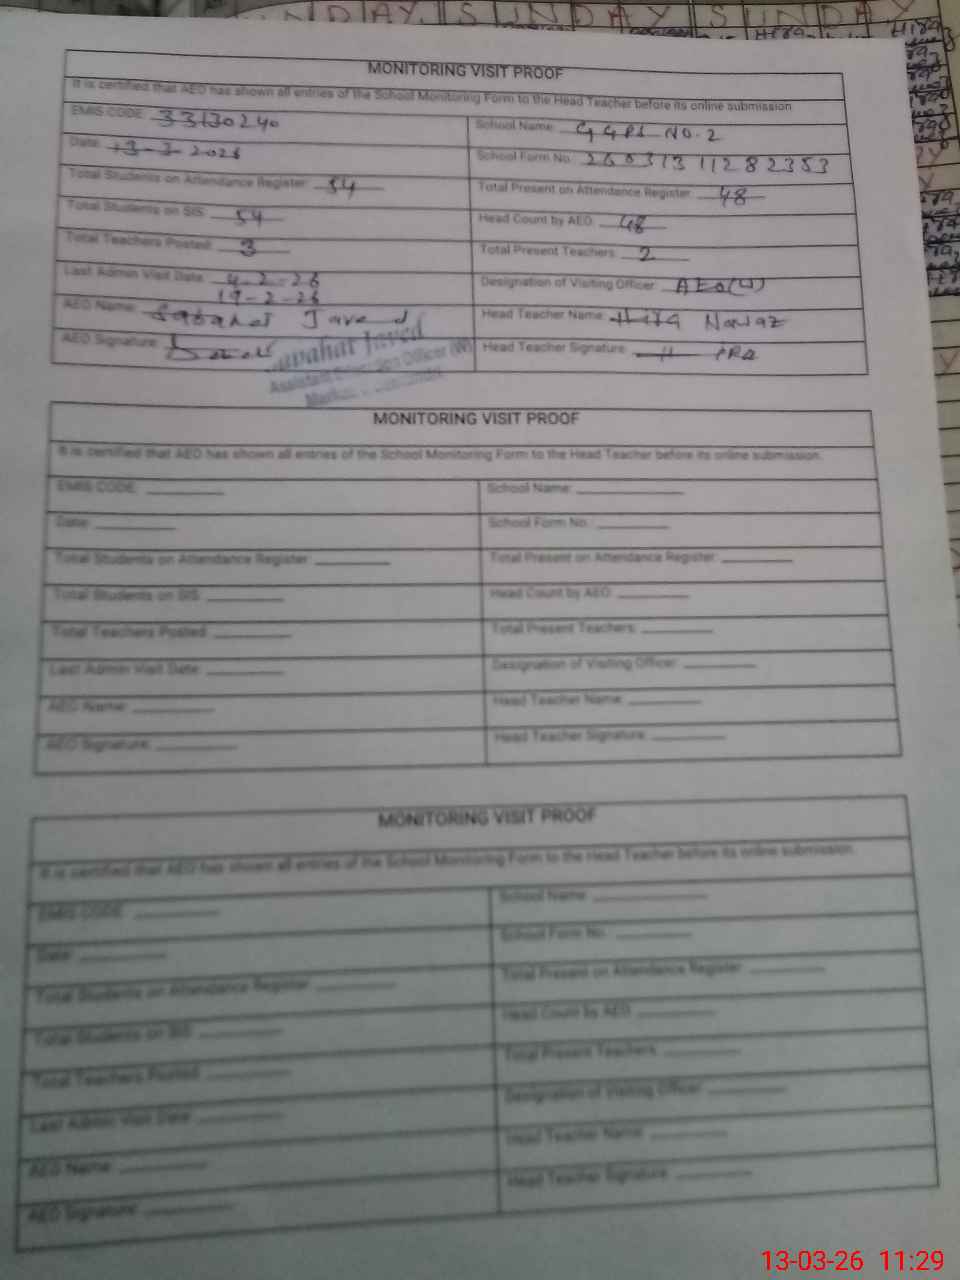 SUNDAY SUNDAY SUNDAY
MONITORING VISIT PROOF
It is certified that AEO has shown all entries of the School Monitoring Form to the Head Teacher before its online submission.
EMIS CODE: 33130240
School Name: GGPS NO. 2
Date: 13-3-2026
School Form No.: 26031311282353
Total Students on Attendance Register: 54
Total Present on Attendance Register: 48
Total Students on SIS: 54
Head Count by AEO: 48
Total Teachers Posted: 3
Total Present Teachers: 2
Last Admin Visit Date: 4-2-26
19-2-26
Designation of Visiting Officer: AEO(W)
AEO Name: Sabahat Javed
Head Teacher Name: Hira Nawaz
AEO Signature:
Javed
Assistant Education Officer (W)
Head Teacher Signature:
MONITORING VISIT PROOF
It is certified that AEO has shown all entries of the School Monitoring Form to the Head Teacher before its online submission.
EMIS CODE:
School Name:
Date:
School Form No.:
Total Students on Attendance Register:
Total Present on Attendance Register:
Total Students on SIS:
Head Count by AEO:
Total Teachers Posted:
Total Present Teachers:
Last Admin Visit Date:
Designation of Visiting Officer:
AEO Name:
Head Teacher Name:
AEO Signature:
Head Teacher Signature:
MONITORING VISIT PROOF
It is certified that AEO has shown all entries of the School Monitoring Form to the Head Teacher before its online submission.
EMIS CODE:
School Name:
Date:
School Form No.:
Total Students on Attendance Register:
Total Present on Attendance Register:
Total Students on SIS:
Head Count by AEO:
Total Teachers Posted:
Total Present Teachers:
Last Admin Visit Date:
Designation of Visiting Officer:
AEO Name:
Head Teacher Name:
AEO Signature:
Head Teacher Signature:
13-03-26 11:29